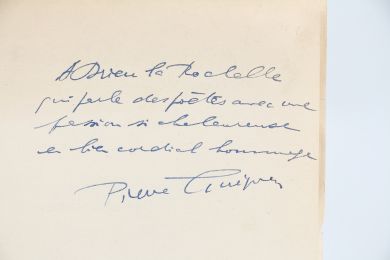 A Drieu la Rochelle
qui parle des poètes avec une
passion si chaleureuse
en bien cordial hommage
Pierre Guéguen